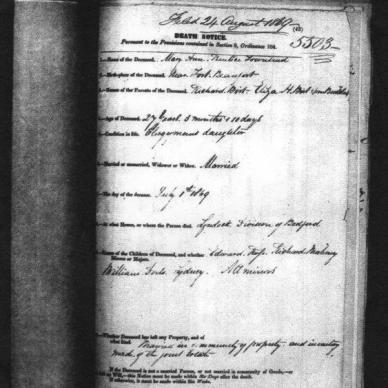 Filed 24 August 1869
5503
DEATH NOTICE.
Pursuant to the Provisions contained in Section 9, Ordinance 104.
1.—Name of the Deceased. Mary Ann Townsend
2.—Birthplace of the Deceased. Near Fort Beaufort
3.—Names of the Parents of the Deceased. Richard Birt Eliza H Birt
4.—Age of Deceased. 27 years 5 months 10 days
5.—Condition in life. Clergymans daughter
6.—Married or unmarried, Widower or Widow. Married
7.—The day of the decease. July 1st 1869
8.—At what House, or where the Person died. Lyndoch Division of Bedford
9.—Names of the Children of Deceased, and whether Edward Richard
Minors or Majors.
William Sydney. All minors
—Whether Deceased has left any Property, and of
what kind. Married in community of property and inventory
made of the joint Estate
If the Deceased is not a married Person, or not married in community of Goods,
this Notice must be made within Days after the death.
If otherwise, it must be made within Six Weeks.